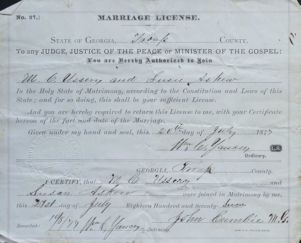 No. 37.
MARRIAGE LICENSE.
STATE OF GEORGIA, Troup COUNTY.
To any JUDGE, JUSTICE OF THE PEACE or MINISTER OF THE GOSPEL:
You are Hereby Authorized to Join
M. C. Ussery and Susan Askew
In the Holy State of Matrimony, according to the Constitution and Laws of this
State; and for so doing, this shall be your sufficient License.
And you are hereby required to return this License to me, with your Certificate
hereon of the fact and date of the Marriage.
Given under my hand and seal, this 20th day of July 1877
Wm. C. Yancey L.S.
Ordinary.
GEORGIA, Troup County.
I CERTIFY, that M. C. Ussery and
Susan Askew were joined in Matrimony by me,
this day of July Eighteen Hundred and Seventy Seven
Recorded Wm. C. Yancey Ordinary John M. G.